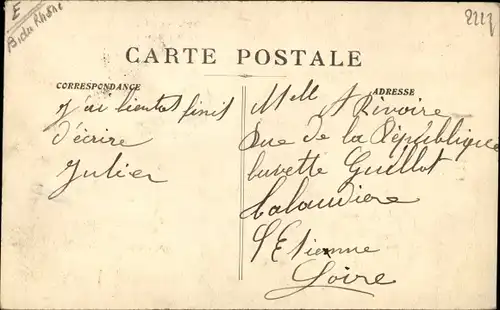 E
B. du Rhône
2227
CARTE POSTALE
CORRESPONDANCE
J'ai bientot finit
d'écrire
Julien
ADRESSE
Mell A Rivoire
Rue de la République
buvette Guillot
Talaudiere
St Etienne
Loire